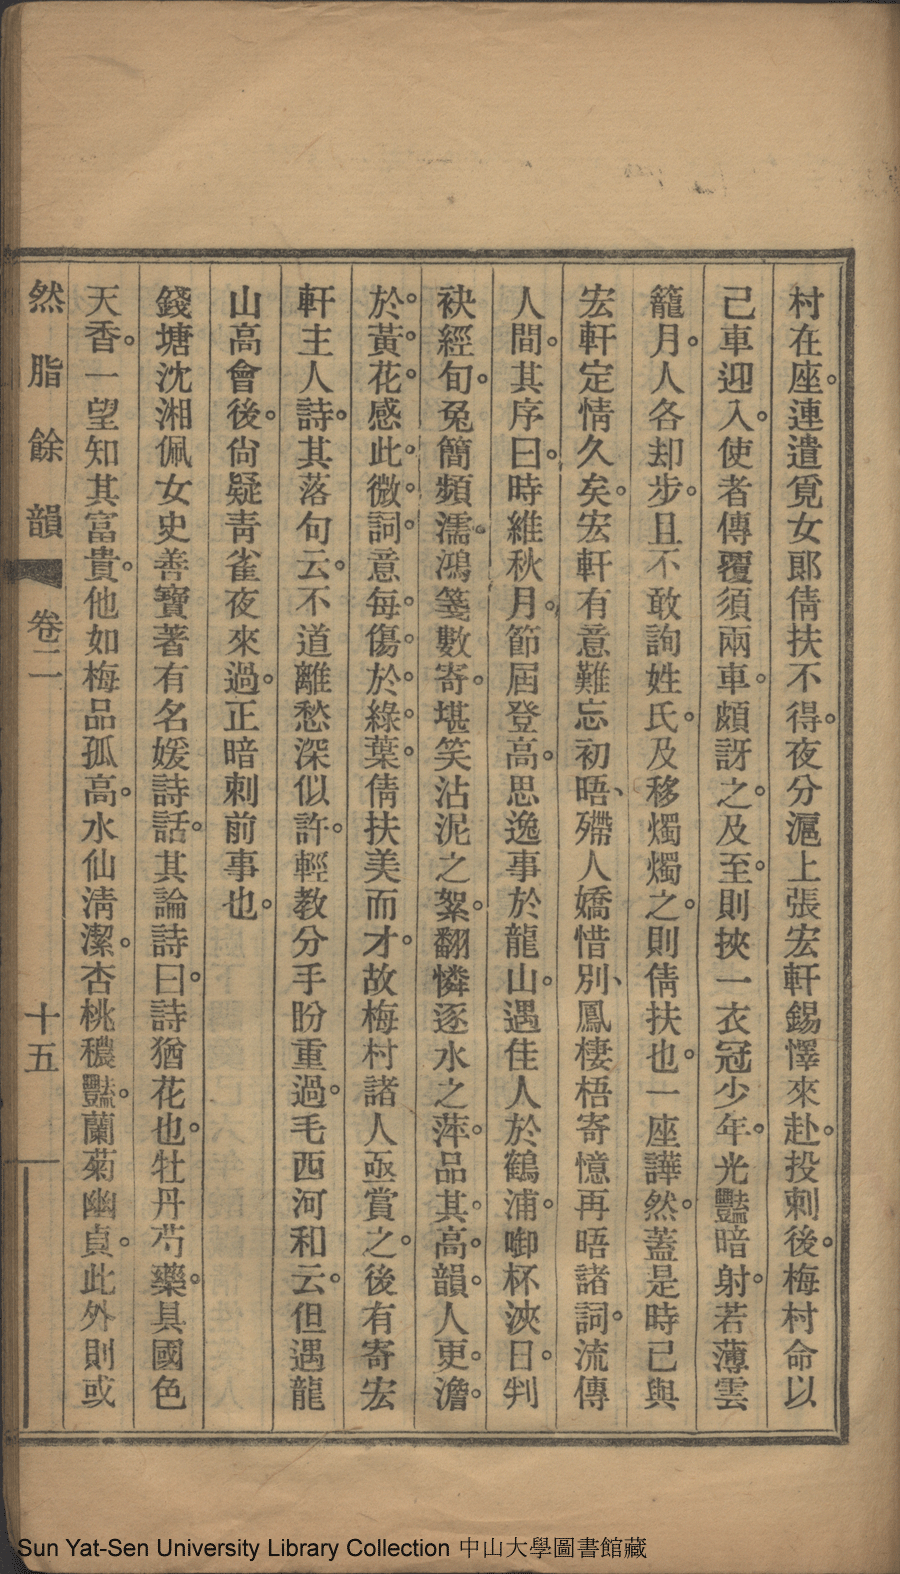 村在座。連遣覓女郎倩扶不得。夜分滬上張宏軒錫懌來赴。投刺後。梅村命以
己車迎入。使者傳覆須兩車。頗訝之。及至。則挾一衣冠少年。光豔暗射。若薄雲
籠月。人各却步。且不敢詢姓氏。及移燭燭之。則倩扶也。一座譁然。蓋是時已與
宏軒定情久矣。宏軒有意難忘初晤、殢人嬌惜別、鳳棲梧寄憶再晤諸詞。流傳
人間。其序曰。時維秋月。節屆登高。思逸事於龍山。遇佳人於鶴浦。啣杯浹日。判
袂經旬。兔簡頻濡。鴻箋數寄。堪笑沾泥之絮。翻憐逐水之萍。品其。高。韻。人更。澹。
於。黃。花。感此。微。詞。意每。傷。於。綠。葉。倩扶美而才。故梅村諸人亟賞之。後有寄宏
軒主人詩。其落句云。不道離愁深似許。輕教分手盼重過。毛西河和云。但遇龍
山高會後。尙疑靑雀夜來過。正暗刺前事也。
錢塘沈湘佩女史善寶著有名媛詩話。其論詩曰。詩猶花也。牡丹芍藥。具國色
天香。一望知其富貴。他如梅品孤高。水仙淸潔。杏桃穠豔。蘭菊幽貞。此外則或
然脂餘韻 卷二 十五
Sun Yat-Sen University Library Collection 中山大學圖書館藏